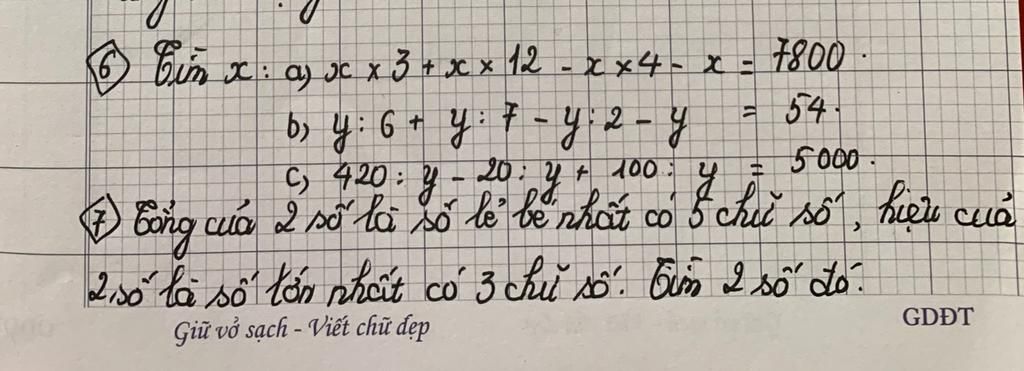 6 Tìm x : a) x x 3 + x x 12 - x x 4 - x = 7800.
b) y : 6 + y : 7 - y : 2 - y = 54.
c) 420 : y - 20 : y + 100 : y = 5000.
7) Tổng của 2 số là số lẻ bé nhất có 5 chữ số, hiệu của
2 số là số lớn nhất có 3 chữ số. Tìm 2 số đó.
Giữ vở sạch - Viết chữ đẹp
GDĐT